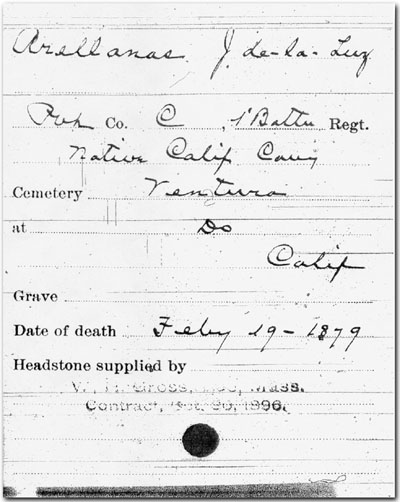 Arellanas J. de-la-Luz
Pvt Co. C, 1' Battn Regt.
Native Calif Cavy
Cemetery Ventura
at Do
Calif
Grave
Date of death Feby 19-1879
Headstone supplied by
Gross, Lee, Mass.
Contract, Oct. 20, 1896.